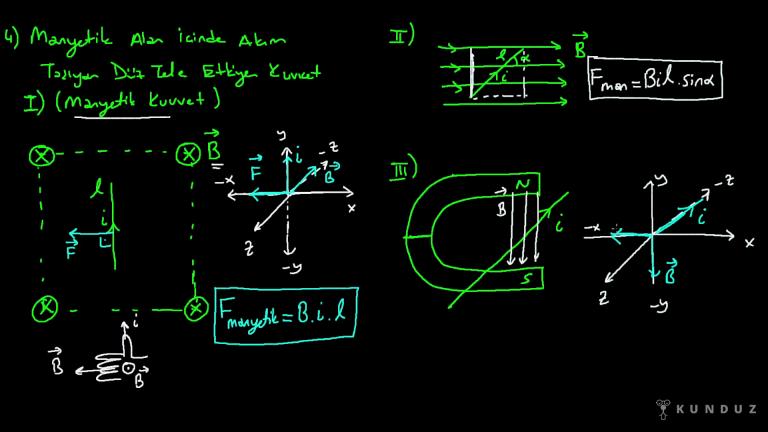 4) Manyetik Alan içinde Akım
Taşıyan Düz Tele Etkiyen Kuvvet
I) (Manyetik Kuvvet)
B
l
i
F
y
i
-z
F
B
-x
x
z
-y
Fmanyetik = B.i.l
i
B
B
II)
B
l
α
i
Fman = Bil.sinα
III)
N
B
i
S
y
-z
i
-x
x
B
z
-y
KUNDUZ